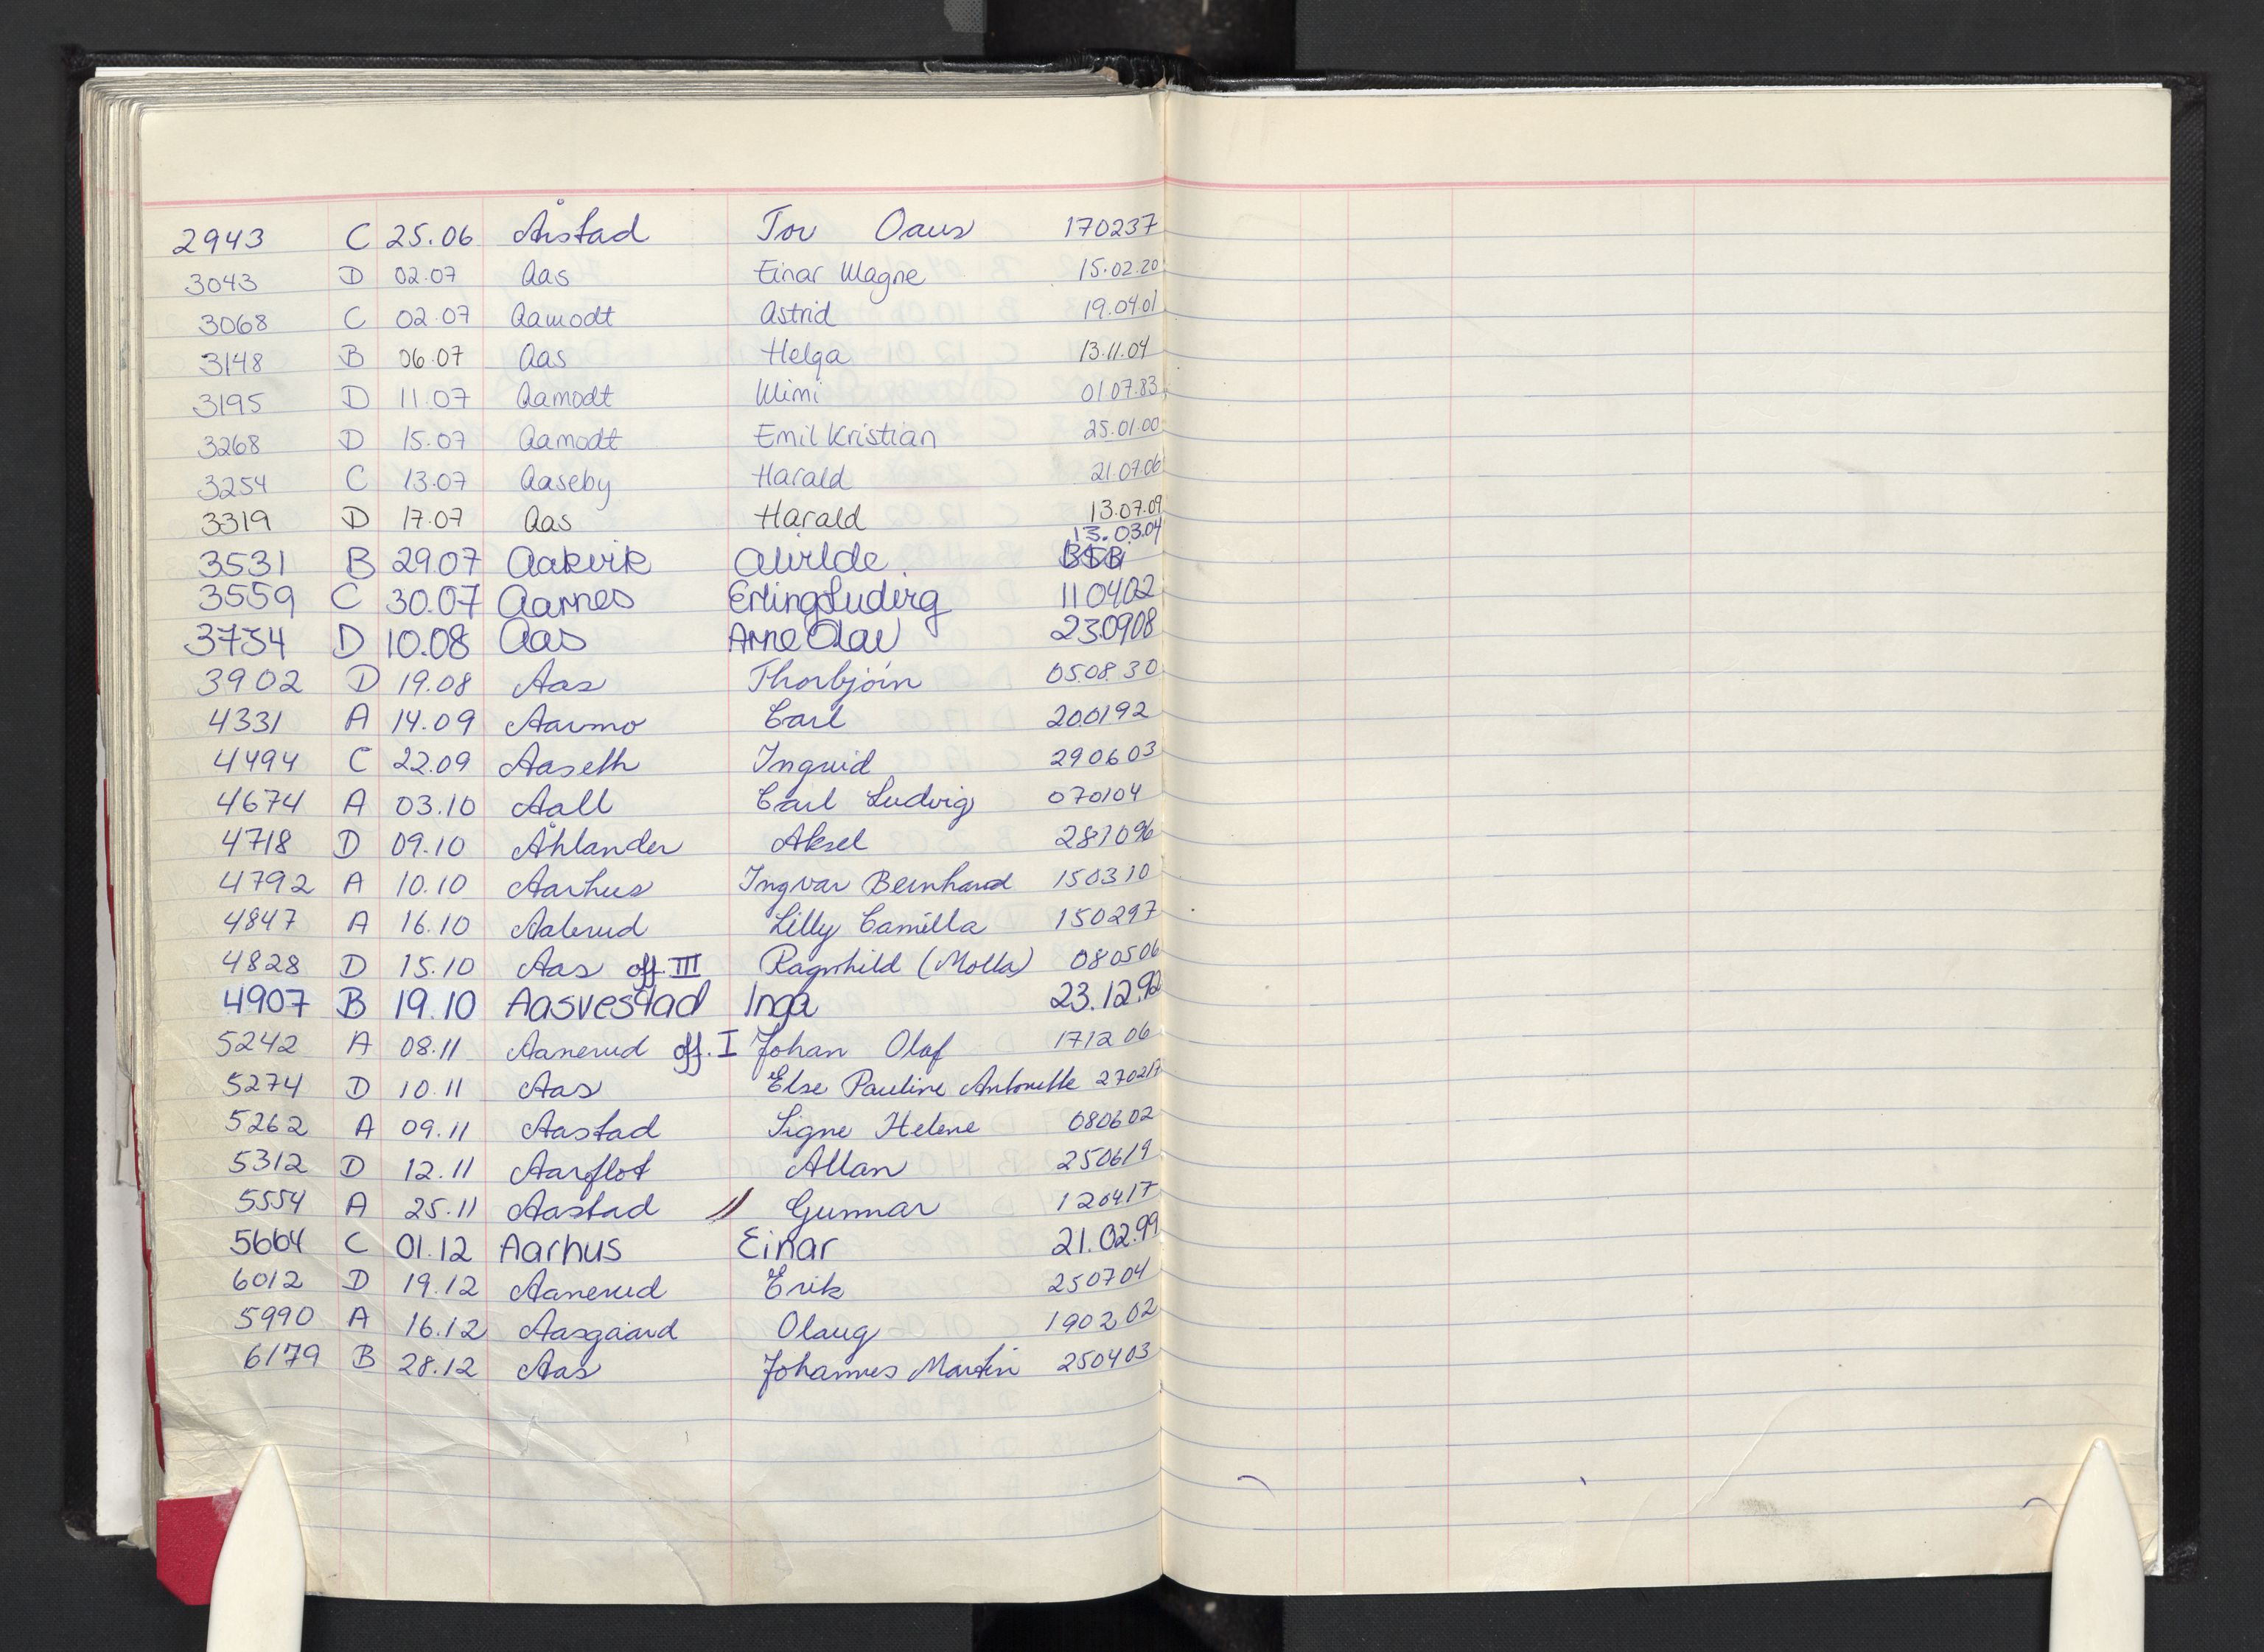 2943 C 25.06 Åstad Tor Oaus 170237
3043 D 02.07 Aas Einar Magne 15.02.20
3068 C 02.07 Aamodt Astrid 19.04.01
3148 B 06.07 Aas Helga 13.11.04
3195 D 11.07 Aamodt Mimi 01.07.83
3268 D 15.07 Aamodt Emil Kristian 25.01.00
3254 C 13.07 Aaseby Harald 21.07.06
3319 D 17.07 Aas Harald 13.07.09
13.03.04
3531 B 29.07 Aakvik Alvilde
3559 C 30.07 Aarnes Erling Ludvig 110402
3734 D 10.08 Aas Arne Olav 230908
3902 D 19.08 Aas Thorbjörn 050830
4331 A 14.09 Aarmo Carl 200192
4494 C 22.09 Aaseth Ingrid 290603
4674 A 03.10 Aall Carl Ludvig 070104
4718 D 09.10 Åhlander Aksel 281096
4792 A 10.10 Aarhus Ingvar Bernhard 150310
4847 A 16.10 Aalerud Lilly Camilla 150297
4828 D 15.10 Aas off. III Ragnhild (Molla) 080506
4907 B 19.10 Aasvestad Inga 23.12.92
5242 A 08.11 Aanerud off. I Johan Olaf 171206
5274 D 10.11 Aas Else Pauline Antonette 270217
5262 A 09.11 Aastad Signe Helene 080602
5312 D 12.11 Aarflot Allan 250619
5554 A 25.11 Aastad // Gunnar 120417
5664 C 01.12 Aarhus Einar 21.02.99
6012 D 19.12 Aanerud Erik 250704
5990 A 16.12 Aasgaard Olaug 190202
6179 B 28.12 Aas Johannes Martin 250403